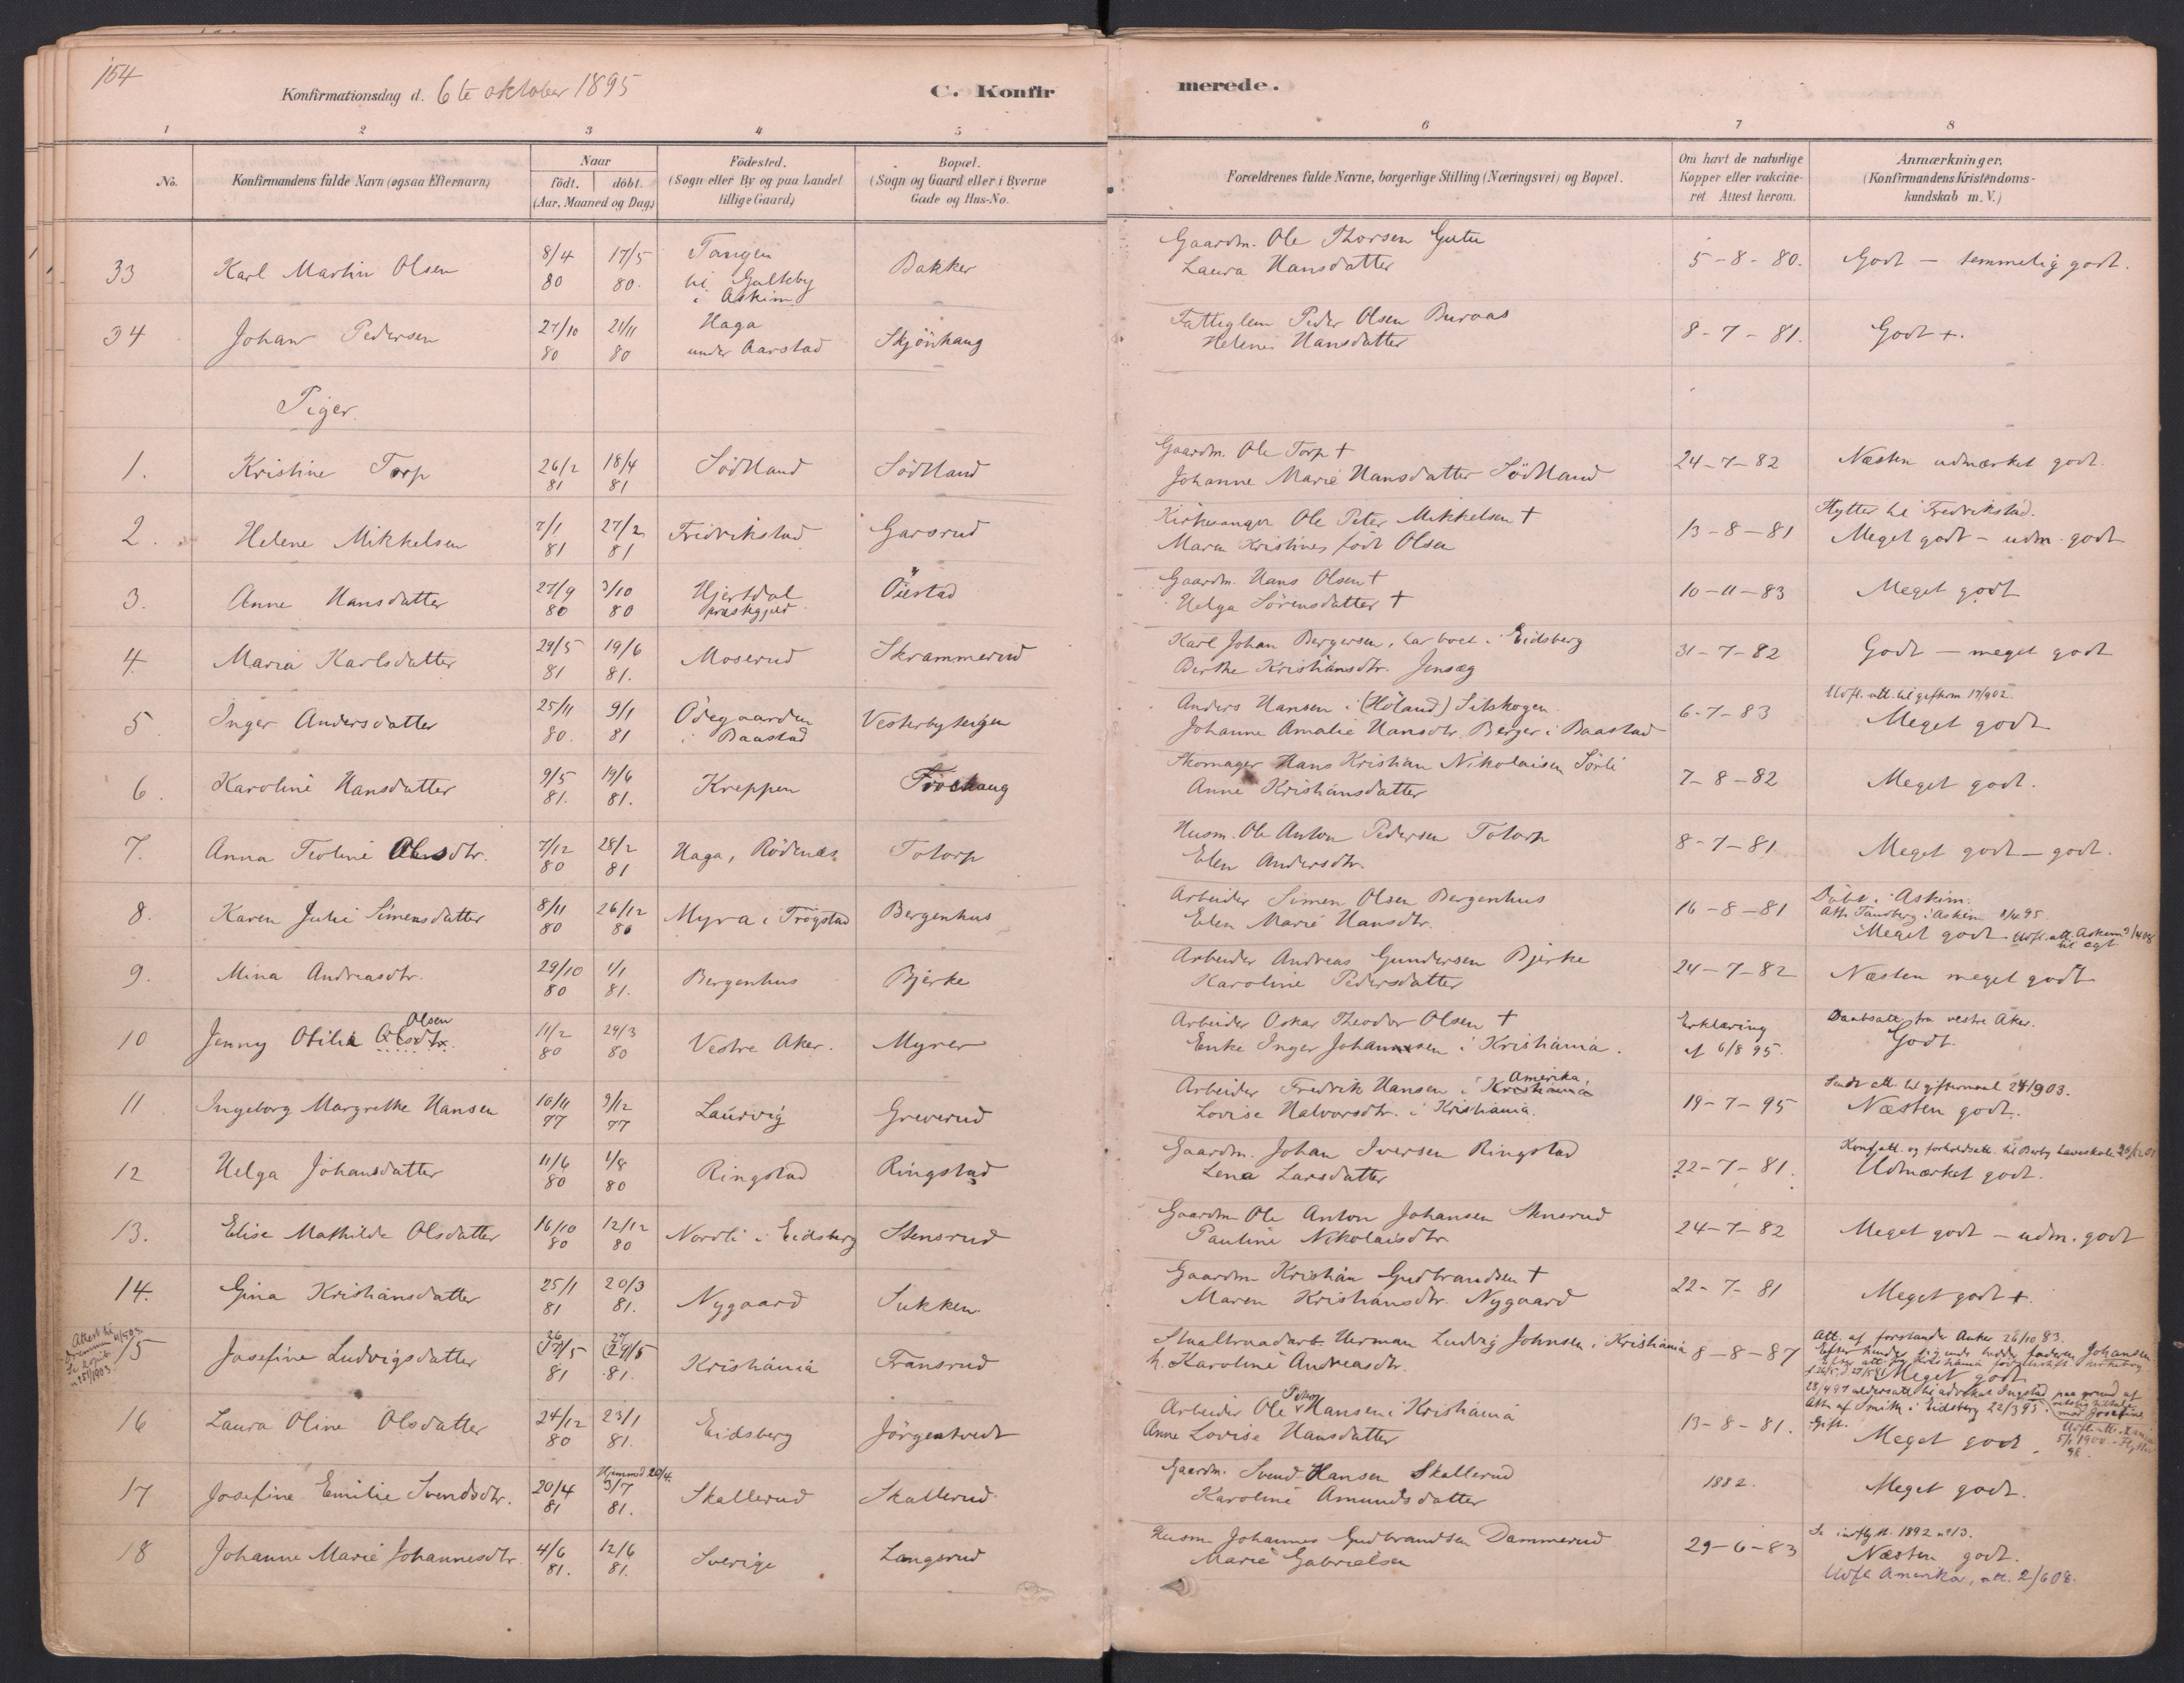 154
Konfirmationsdag d. 6te oktober 1895
C. Konfirmerede.
1 2 3 4 5 6 7 8
No.
Konfirmandens fulde Navn (ogsaa Efternavn)
Naar
födt. döbt.
(Aar, Maaned og Dag.)
Födested.
(Sogn eller By og paa Landet
tillige Gaard)
Bopæl.
(Sogn og Gaard eller i Byerne
Gade og Hus-No.
Forældrenes fulde Navne, borgerlige Stilling (Næringsvei) og Bopæl.
Om havt de naturlige
Kopper eller vakcine-
ret. Attest herom.
Anmærkninger.
(Konfirmandens Kristendoms-
kundskab m. V.)
33 Karl Martin Olsen 8/4 80 17/5 80. Tangen i Askim Bakker
Gaardm. Ole Thorsen
Laura Hansdatter 5-8-80. Godt - temmelig godt.
34 Johan Pedersen 27/10 80 21/11 80 Haga under Aarstad Skjönhaug
Fattiglem Peder Olsen Buraas
Helene Hansdatter 8-7-81. Godt +.
Piger.
1. Kristine Torp 26/2 81 18/4 81 Södtland Södtland
Gaardm. Ole Torp +
Johanne Marie Hansdatter Södtland 24-7-82 Næsten udmærket godt.
2. Helene Mikkelsen 7/1 81 27/2 81 Fredrikstad Garsrud
Kirkesanger Ole Peter Mikkelsen +
Maren Kristines födt Olsen 13-8-81 Flytter til Fredrikstad.
Meget godt - udm. godt
3. Anne Hansdatter 27/9 80 3/10 80 Hjertdal præstegjeld Öiestad
Gaardm. Hans Olsen +
Helga Sörensdatter + 10-11-83 Meget godt
4. Maria Karlsdatter 29/5 81 19/6 81. Moserud Skrammerud
Karl Johan Bergersen, har boet i Eidsberg
Berthe Kristiansdtr. Jensæg 31-7-82 Godt - meget godt
5. Inger Andersdatter 25/11 80. 9/1 81 Ödegaarden i Baastad Vesterbyteigen
Anders Hansen i (Höland) Setskogen
Johanne Amalie Hansdtr. Berger i Baastad 6-7-83 Udfl. att. til gifterm 17/902.
Meget godt
6. Karoline Hansdatter 9/5 81. 19/6 81. Kreppen Fröshaug
Skomager Hans Kristian Nikolaisen Sörli
Anne Kristiansdatter 7-8-82 Meget godt.
7. Anna Teoline Olesdtr. 7/12 80 28/2 81 Haga, Rödenæs Totorp
Husm. Ole Anton Pedersen Totorp
Elen Andersdtr. 8-7-81 Meget godt - godt.
8. Karen Julie Simensdatter 8/11 80 26/12 80 Myra i Trögstad Bergenhus
Arbeider Simen Olsen Bergenhus
Elen Marie Hansdtr. 16-8-81 Döbt i Askim.
Att. Tandberg i Askim 8/4 95.
Meget godt Udfl. att. Askim til egt
9. Mina Andreasdtr. 29/10 80 1/1 81. Bergenhus Bjerke
Arbeider Andreas Gundersen Bjerke
Karoline Pedersdatter 24-7-82 Næsten meget godt
10 Jenny Otilia Olsdtr. Olsen 11/2 80 29/3 80 Vestre Aker. Myrer
Arbeider Oskar Theodor Olsen +
Enke Inger Johannesen i Kristiania. Erklæring af 6/8 95. Daabsatt. fra vestre Aker.
Godt.
11 Ingeborg Margrethe Hansen 10/11 77 9/12 77 Laurvig Greverud
Arbeider Fredrik Hansen i Kristiania Amerika
Lovise Halvorsdtr. i Kristiania. 19-7-95 Sendt att. til giftermaal 24/903.
Næsten godt.
12 Helga Johansdatter 11/6 80 1/8 80 Ringstad Ringstad
Gaardm. Johan Iversen Ringstad
Lena Larsdatter 22-7-81. Udmærket godt.
13. Elise Mathilde Olsdatter 16/10 80 12/12 80 Nordli i Eidsberg Stensrud
Gaardm Ole Anton Johansen Stensrud
Pauline Nikolaisdtr 24-7-82 Meget godt - udm. godt
14. Gina Kristiansdatter 25/1 81 20/3 81. Nygaard Sukken.
Gaardm Kristian Gudbrandsen +
Maren Kristiansdtr. Nygaard 22-7-81 Meget godt +.
15 Josefine Ludvigsdatter 81 81. Kristiania Fransrud
Staaltraadarb. Herman Ludvig Johnsen i Kristiania
h. Karoline Andreasdtr. 8-8-87 Att. af forstander Anker 26/10 83.
Meget godt
16 Laura Oline Olsdatter 24/12 80 23/1 81. Eidsberg Jörgentvedt
Arbeider Ole Peter Hansen i Kristiania
Anne Lovise Hansdatter 13-8-81. Att. af Smith i Eidsberg 22/3 95.
Gift. Meget godt.
17 Josefine Emilie Svendsdtr. 20/4 81 Hjemmed. 20/4. 3/7 81. Skallerud Skallerud
Gaardm. Svend Hansen Skallerud
Karoline Amundsdatter 1882. Meget godt.
18 Johanne Marie Johannesdtr. 4/6 81. 12/6 81. Sverige Langsrud
Husm. Johannes Gudbrandsen Dammerud
Marie Gabrielsen 29-6-83 Se indfly.tt. 1892 nr 13.
Næsten godt.
Udfl Amerika, att. 2/6 08.